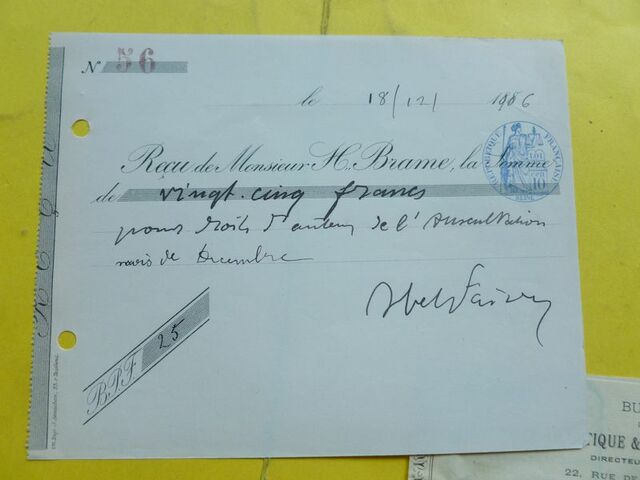 N° 56
le 18/12/ 1906
Reçu de Monsieur H. Brame, la Somme
de vingt-cinq francs
pour droits d'auteur de l'Auscultation
mois de Décembre
Abel Faivre
B.P.F. 25
REPUBLIQUE FRANÇAISE
10
BU
TIQUE &
DIRECTEU
22, RUE DE